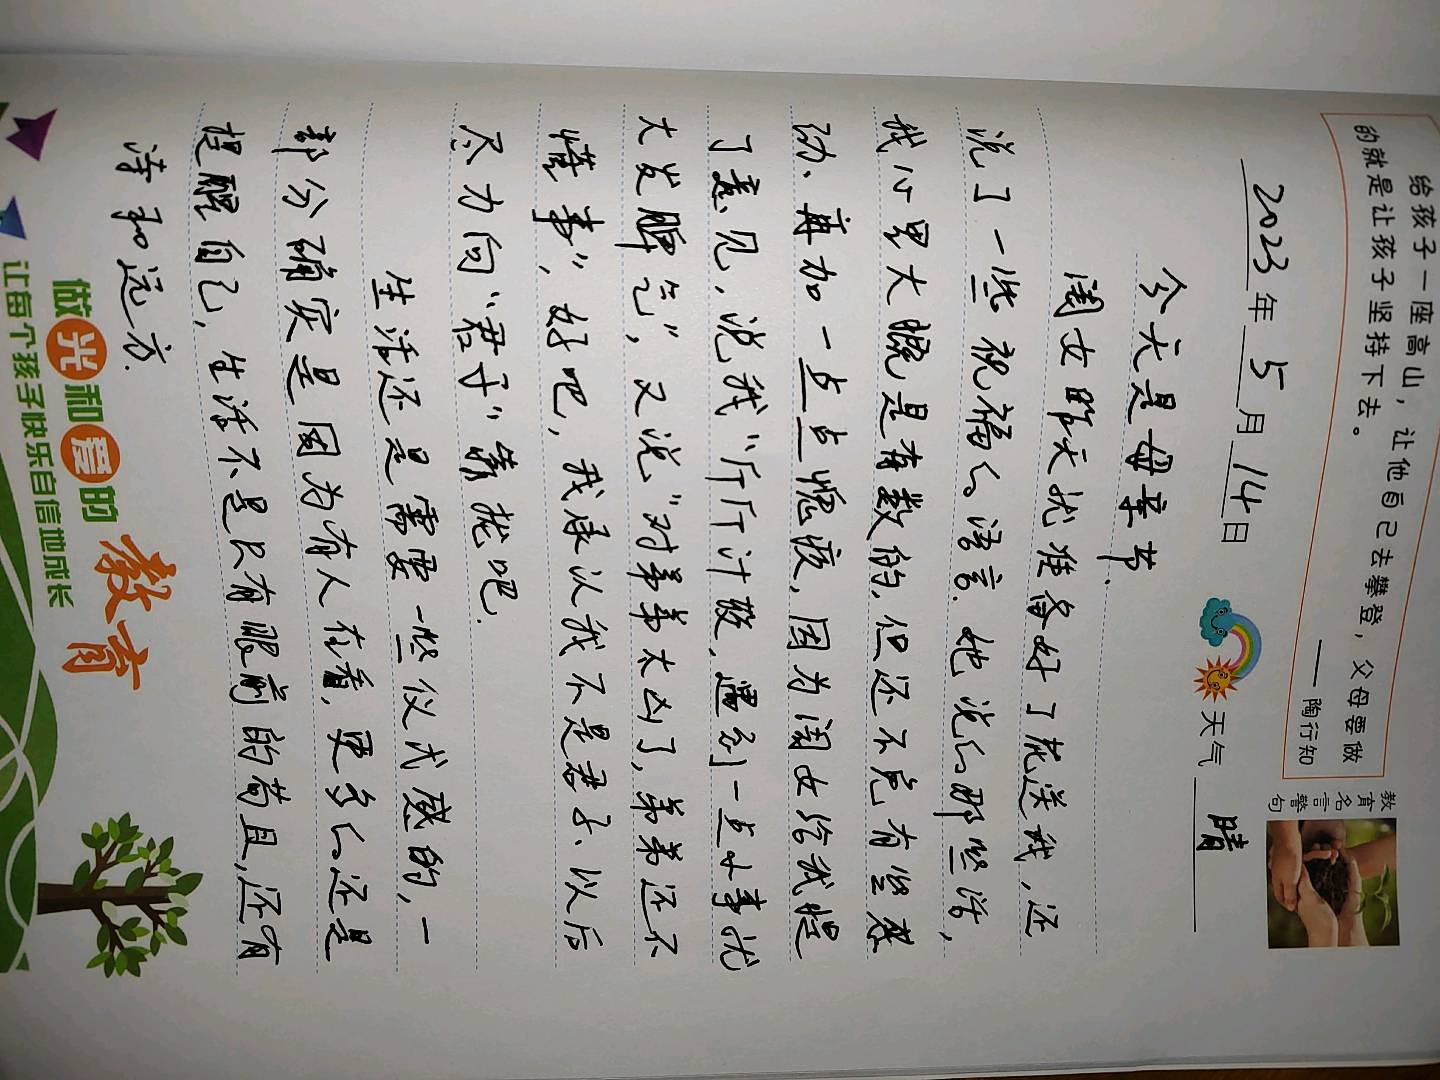 给孩子一座高山，让他自己去攀登，父母要做
的就是让孩子坚持下去。
——陶行知
教育名言警句
2023年5月14日 天气 晴
今天是母亲节.
闺女昨天就准备好了花送我，还
说了一些祝福的语言.她说的那些话，
我心里大概是有数的.但还不免有些感
动、再加一点点愧疚，因为闺女给我提
了意见，说我“斤斤计较，遇到一点小事就
大发脾气”，又说“对弟弟太凶了，弟弟还不
懂事”，好吧，我承认我不是君子、以后
尽力向“君子”靠拢吧.
生活还是需要一些仪式感的，一
部分确实是因为有人在看，更多的还是
提醒自己，生活不是只有眼前的苟且，还有
诗和远方.
做光和爱的教育
让每个孩子快乐自信地成长